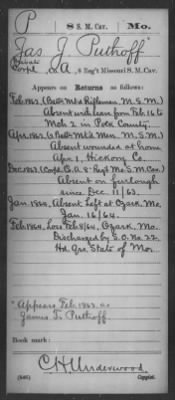 P 8 S. M. Cav. Mo.
Jas J Puthoff*
Private
Corpl, Co. A, 8 Reg't Missouri S. M. Cav.
Appears on Returns as follows:
Feb. 1862 (Batt. Mtd Riflemen, M. S. M.)
Absent with leave from Feb. 16 to
Mch 2 in Polk County.
Apr. 1862 (Batt. Mt'd Men. M. S. M.)
Absent wounded at home
Apr 1, Hickory Co.
Dec. 1863 (Corpl. Co. A 8" Reg't Mo. S. M. Cav.)
Absent on furlough
since Dec. 11/63.
Jan. 1864, Absent Left at Ozark, Mo.
Jan. 16/64.
Feb. 1864, Loss Feb. 8/64, Ozark, Mo.
Discharged by S. O. No. 22.
Hd. Qrs. State of Mo.
*Appears Feb. 1863 as
James T. Puthoff
Book mark:
C H Underwood
(546) Copyist.